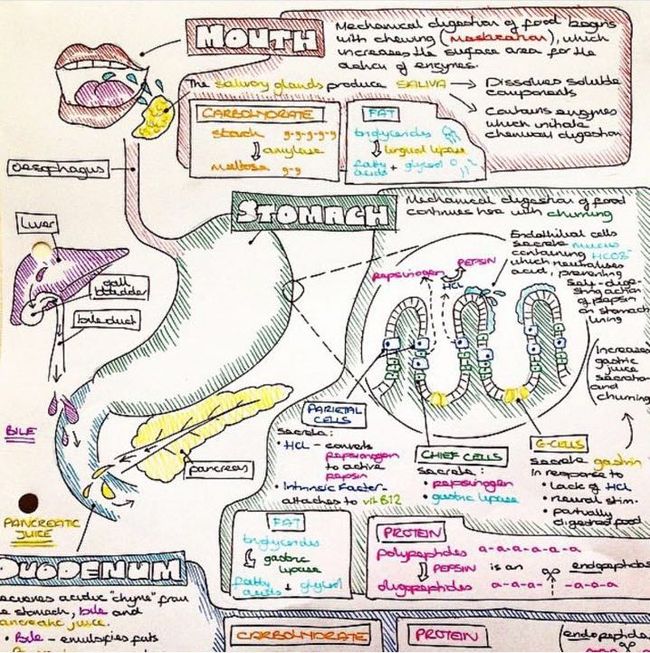 MOUTH
Mechanical digestion of food begins
with chewing (mastication), which
increases the surface area for the
action of enzymes.
The salivary glands produce SALIVA
Dissolves soluble
components
Contains enzymes
which initiate
chemical digestion
CARBOHYDRATE
starch g-g-g-g-g
amylase
maltose g-g
FAT
triglycerides
lingual lipase
fatty
acids + glycerol
oesophagus
Liver
gall
bladder
bile duct
BILE
pancreas
PANCREATIC
JUICE
STOMACH
Mechanical digestion of food
continues here with churning
Endothelial cells
secrete mucus
containing HCO3-
which neutralises
acid, preventing
self-dige-
sting action
of pepsin
on stomach
lining
pepsinogen
PEPSIN
HCl
Increases
gastric
juice
secretion
and
churning
PARIETAL
CELLS
secrete:
• HCl - converts
pepsinogen
to active
pepsin
• Intrinsic Factor-
attaches to vit B12
CHIEF CELLS
secrete:
• pepsinogen
• gastric lipase
G-CELLS
secrete gastrin
in response to
• lack of HCl
• neural stim.
• partially
digested food
FAT
triglycerides
gastric
lipase
fatty
acids + glycerol
PROTEIN
polypeptides a-a-a-a-a-a
PEPSIN is an endopeptidas
oligopeptides a-a-a- -a-a-a
DUODENUM
receives acidic "chyme" from
e stomach, bile and
ancreatic juice.
• Bile - emulsifies fats
CARBOHYDRATE
PROTEIN
(endopep